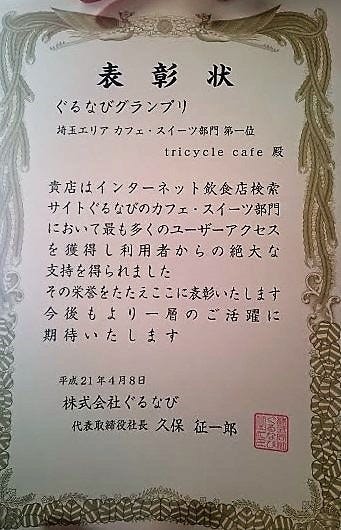 表彰状
ぐるなびグランプリ
埼玉エリア カフェ・スイーツ部門 第一位
tricycle cafe 殿
貴店はインターネット飲食店検索
サイトぐるなびのカフェ・スイーツ部門
において最も多くのユーザーアクセス
を獲得し利用者からの絶大な
支持を得られました
その栄誉をたたえここに表彰いたします
今後もより一層のご活躍に
期待いたします
平成21年4月8日
株式会社ぐるなび
代表取締役社長 久保 征一郎